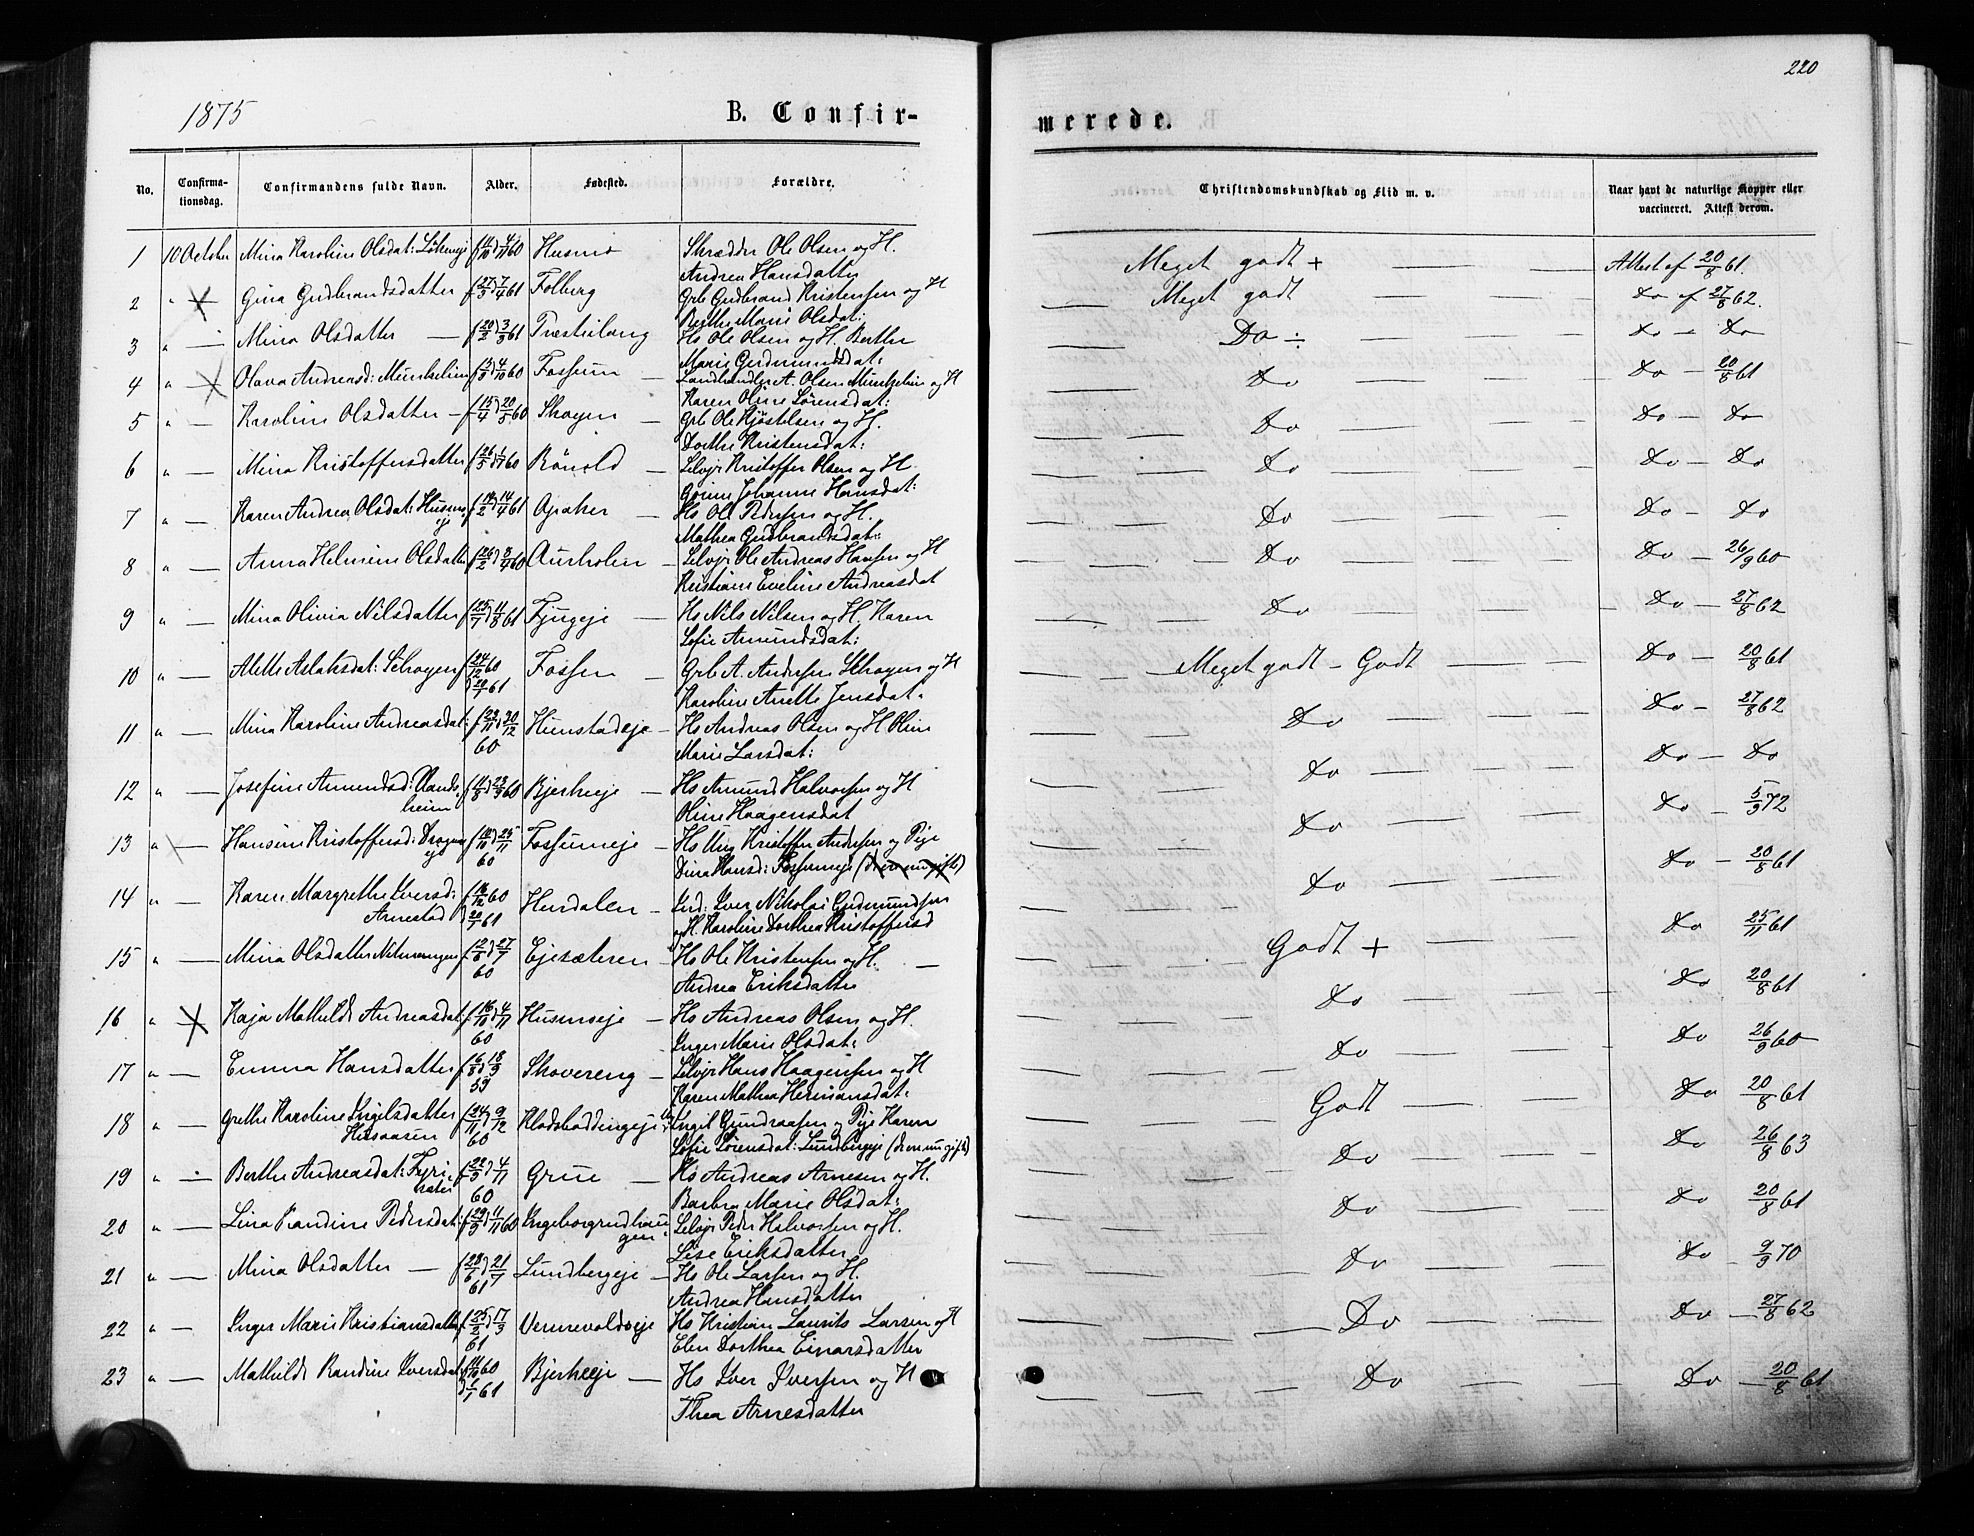 220
1875
B. Confir-
merede.
No. Confirma-tionsdag. Confirmandens fulde Navn. Alder. Fødested. Forældre. Christendomskundskab og Flid m. v. Naar havt de naturlige Kopper eller vaccineret. Attest derom.
1 10 October Mina Karoline Olsdat: f 4/11 60 Skrædder Ole Olsen og H. Meget godt + Attest af 20/8 61.
Andrea Hansdatter
2 " Gina Gudbrandsdatter f 27/3) 7/4 61 Folberg Grb Gudbrand Kristensen og H Meget godt Do af 27/8 62.
Berthe Marie Olsdat:
3 " Mina Olsdatter f 20/2) 3/3 61 Hs Ole Olsen og H. Berthe Do ÷ Do - Do
Marie Gudmundsdat:
4 " Olava Andreasd: Munkelien 60 Fossum Landhandler A. Olsen Munkelien og H Do Do - 20/8 61
Karen Oline Sørensdat:
5 " Karoline Olsdatter f 15/4) 20/5 60 Skogen Grb Ole Kjøstelsen og H. Do Do - Do
Dorthe Kristensdat:
6 " Mina Kristoffersdatter f 26/5) 1/7 60 Rønold Selvejr Kristoffer Olsen og H. Do Do - Do
Johanne Hansdat:
7 " Karen Andrea Olsdat: 14/4 61 Hs Ole Pedersen og H. Do Do - Do
Mathea Gudbrandsdat:
8 " Anna Helmine Olsdatter f 26/2) 60 Aurholm Selvejr Ole Andreas Hansen og H Do Do - 26/9 60
Kristiane Eveline Andreasdat
9 " Mina Olivia Nilsdatter f 25/7) 11/8 61 Hs Nils Nilsen og H. Karen Do Do - 27/8 62
Sofie Amundsdat:
10 " Alette Aslaksdat: Schogen f 24/12 60 Fossen Grb A. Andersen Schogen og H Meget godt - Godt Do - 20/8 61
) 20/1 61 Karoline Anette Jensdat.
11 " Mina Karoline Andreasdat: f 22/11) 30/12 Hunstadeje Hs Andreas Olsen og H Oline Do Do - 27/8 62
60 Marie Larsdat:
12 " Josefine Amundsd: f 11/8) 23/9 60 Bjerkeeje Hs Amund Halvorsen og H Do Do - Do
Oline Haagensdat
13 " Hansine Kristoffersd: f 10/10) 25/11 Fossumeje Hs Ung Kristoffer Andersen og Pige Do Do - 5/9 72
60 Dina Hansd: Fossumeje (de ere ugifte)
14 " Karen Margrethe Iversd: f 16/12 60 Hurdalen Iver Nikolai Gudmundsen Do Do - 20/8 61
Arnestad 20/1 61 og H. Karoline Dorthea Kristoffersd
15 " Mina Olsdatter f 2/6) 27/7 Ejesæteren Hs Ole Kristensen og H. Godt + Do 25/11 61
60 Andrea Eriksdatter
16 " Kaja Mathilde Andreasdat f 16/10) 4/11 Husmseje Hs Andreas Olsen og H. Do Do 20/8 61
60 Inger Marie Olsdat:
17 " Emma Hansdatter f 6/8) 18/9 Skovereng Selvejr Hans Haagensen og H Do Do 26/9 60
59 Karen Mathea Hermansdat:
18 " Grethe Karoline Ingilsdatter f 24/11) 9/12 Ingil Gundraasen og Pige Karen Godt Do 20/8 61
60 Sofie Sørensdat: Lundbergeje (de ere ugifte)
19 " Berthe Andreasdat: f 22/9) 4/11 Grue Hs Andreas Arnesen og H. Do Do 26/8 63
60 Barbra Marie Olsdat:
20 " Lina Randine Pedersdat: f 29/9) 11/11 60 Selvejr Peder Halvorsen og H. Do Do 20/8 61
Lise Eriksdatter
21 " Mina Olsdatter f 22/6) 21/7 Lundbergeje Hs Ole Larsen og H. Do Do - 9/9 70
61 Andrea Hansdatter
22 " Inger Marie Kristiansdatter f 25/2) 17/3 Vennevoldseje Hs Kristian Laurits Larsen og H Do Do - 27/8 62
61 Elen Dorthea Einarsdatter
23 " Mathilde Randine Iversdat f 60 Bjerkeeje Hs Iver Iversen og H Do Do - 20/8 61
61 Thea Arnesdatter